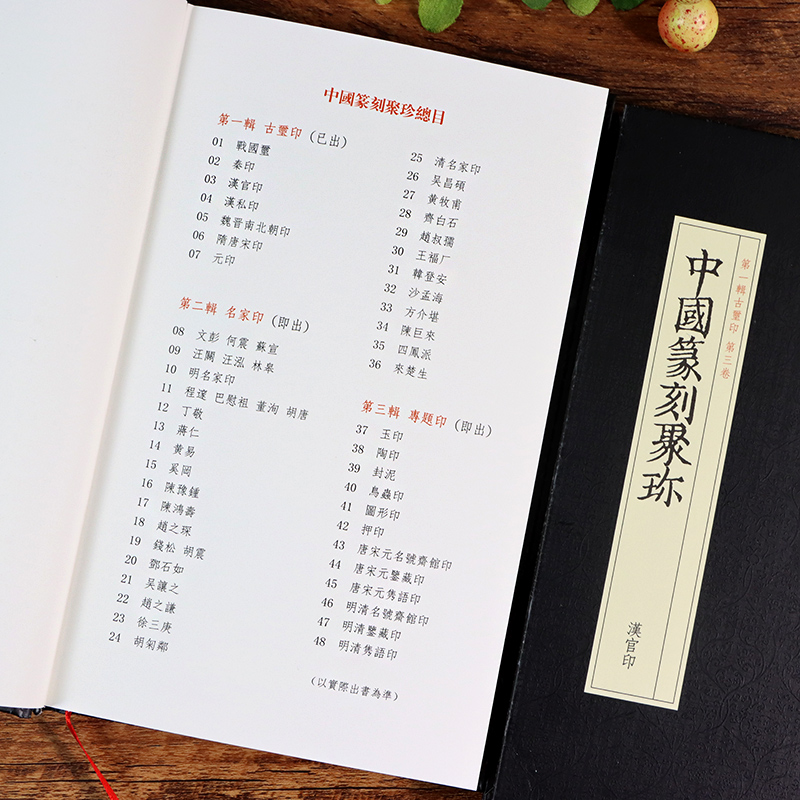 中國篆刻聚珍總目
第一輯 古璽印（已出）
01 戰國璽
02 秦印
03 漢官印
04 漢私印
05 魏晉南北朝印
06 隋唐宋印
07 元印
第二輯 名家印（即出）
08 文彭 何震 蘇宣
09 汪關 汪泓 林皋
10 明名家印
11 程邃 巴慰祖 董洵 胡唐
12 丁敬
13 蔣仁
14 黃易
15 奚岡
16 陳豫鍾
17 陳鴻壽
18 趙之琛
19 錢松 胡震
20 鄧石如
21 吳讓之
22 趙之謙
23 徐三庚
24 胡匊鄰
25 清名家印
26 吳昌碩
27 黃牧甫
28 齊白石
29 趙叔孺
30 王福厂
31 韓登安
32 沙孟海
33 方介堪
34 陳巨來
35 四鳳派
36 來楚生
第三輯 專題印（即出）
37 玉印
38 陶印
39 封泥
40 鳥蟲印
41 圖形印
42 押印
43 唐宋元名號齋館印
44 唐宋元鑒藏印
45 唐宋元雋語印
46 明清名號齋館印
47 明清鑒藏印
48 明清雋語印
（以實際出書為準）
第一輯古璽印 第三卷
中國篆刻聚珎
漢官印